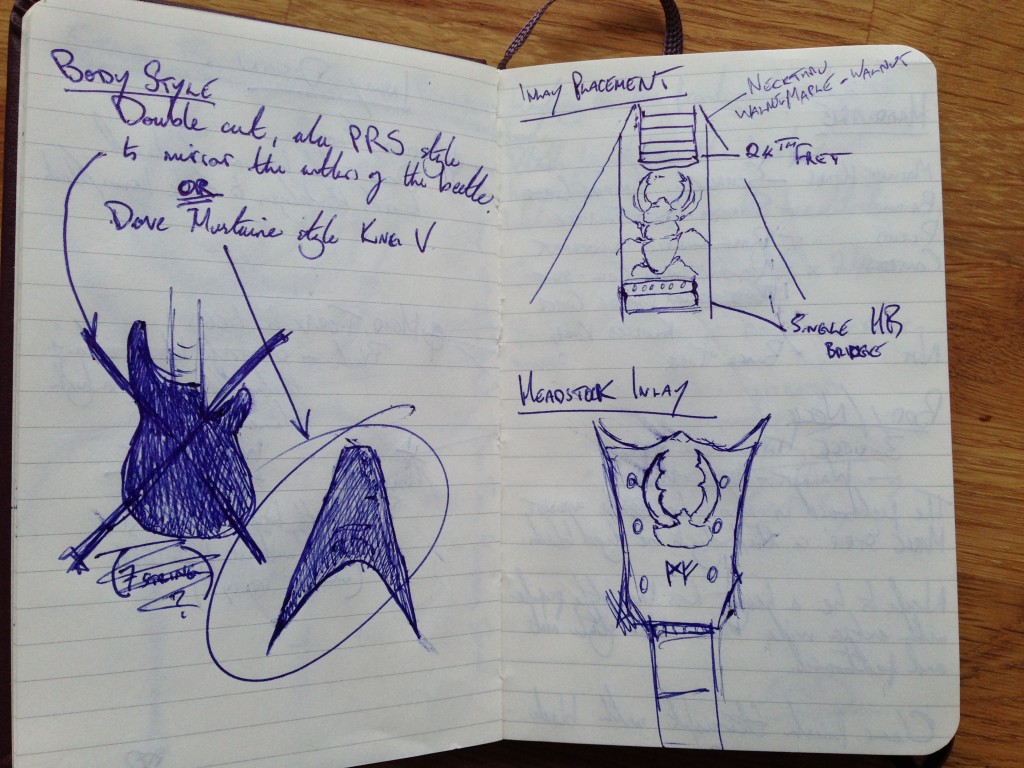 Body Style
Double cut, aka PRS style
to mirror the antlers of the beetle.
OR
Dave Mustaine style King V
7 STRING
?
INLAY PLACEMENT
NECKTHRU
WALNUT/MAPLE-WALNUT
24TH FRET
SINGLE HB
BRIDGE
HEADSTOCK INLAY